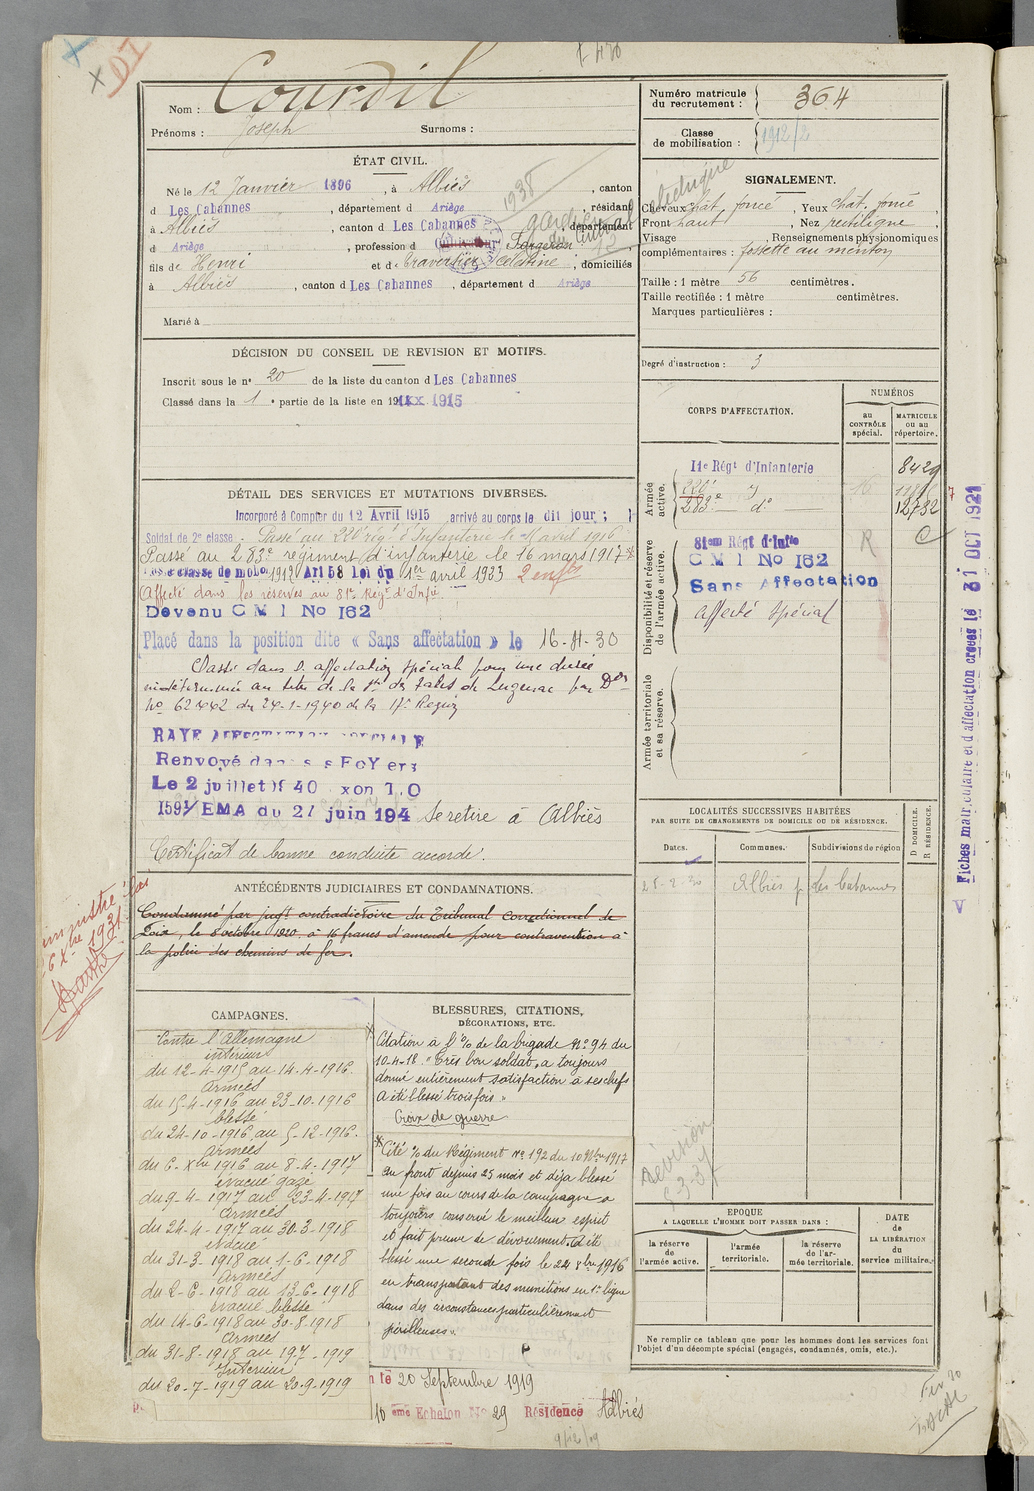 Nom : Courdil
Prénoms : Joseph Surnoms :
Numéro matricule du recrutement : 364
Classe de mobilisation : 1912/2
ÉTAT CIVIL.
Né le 12 Janvier 1896, à Albiès, canton
d Les Cabannes, département d Ariège, résidant
à Albiès, canton d Les Cabannes, département
d Ariège, profession d Cultivateur Forgeron
fils de Henri et de Traversier Célestine, domiciliés
à Albiès, canton d Les Cabannes, département d Ariège
Marié à
1938
SIGNALEMENT.
Cheveux chât. foncé, Yeux chât. foncé,
Front haut, Nez rectiligne,
Visage , Renseignements physionomiques
complémentaires : fossette au menton
Taille : 1 mètre 56 centimètres.
Taille rectifiée : 1 mètre centimètres.
Marques particulières :
Degré d'instruction : 3
DÉCISION DU CONSEIL DE REVISION ET MOTIFS.
Inscrit sous le nº 20 de la liste du canton d Les Cabannes
Classé dans la 1e partie de la liste en 1915
DÉTAIL DES SERVICES ET MUTATIONS DIVERSES.
Incorporé à Compter du 12 Avril 1915, arrivé au corps le dit jour ;
Soldat de 2e classe. Passé au 220e rég. d'Infanterie le avril 1916
Passé au 283e régiment d'infanterie le 16 mars 1917
classe de mob. 1912 Art 58 Loi du 1er avril 1933 2 enfts
Affecté dans les réserves au 81e Régt d'Infie
Devenu C M I No 162
Placé dans la position dite « Sans affectation » le 16-4-30
Passé dans l'affectation spéciale pour une durée
indéterminée au titre de la Sté des Talcs de Luzenac par Don
No 62442 du 24-1-1940 de la 17e Région
RAYE AFFECTATION SPECIALE
Renvoyé dans ses FoYers
Le 2 juillet 1940
1591/EMA du 27 juin 194 Se retire à Albiès
Certificat de bonne conduite accordé.
CORPS D'AFFECTATION.
NUMÉROS
au CONTRÔLE spécial.
MATRICULE ou au répertoire.
Armée active.
11e Régt d'Infanterie 8429
220e
283e dº 12732
Disponibilité et réserve de l'armée active.
81em Régt d'Infie R C
C M I No 162
Sans Affectation
Affecté Spécial
Armée territoriale et sa réserve.
Fiches matriculaire et d'affectation créées le 31 OCT 1921
ANTÉCÉDENTS JUDICIAIRES ET CONDAMNATIONS.
Condamné par jugt contradictoire du Tribunal Correctionnel de
Foix, le 8 octobre 1920 à 16 francs d'amende pour contravention à
la police des chemins de fer.
LOCALITÉS SUCCESSIVES HABITÉES
PAR SUITE DE CHANGEMENTS DE DOMICILE OU DE RÉSIDENCE.
Dates. Communes. Subdivisions de région
D DOMICILE. R RÉSIDENCE.
Albiès p. les Cabannes
CAMPAGNES.
Contre l'Allemagne
intérieur
du 12-4-1915 au 14-4-1916.
Armées
du 15-4-1916 au 23-10-1916
blessé
du 24-10-1916 au 5-12-1916.
Armées
du 6-Xbre 1916 au 8-4-1917
évacué gazé
du 9-4-1917 au 23-4-1917
Armées
du 24-4-1917 au 30-3-1918
évacué
du 31-3-1918 au 1-6-1918
Armées
du 2-6-1918 au 13-6-1918
évacué blessé
du 14-6-1918 au 30-8-1918
Armées
du 31-8-1918 au 19-7-1919
Intérieur
du 20-7-1919 au 20-9-1919
BLESSURES, CITATIONS,
DÉCORATIONS, ETC.
Citation à l'o/o de la brigade Nº 94 du
10-4-18. "Très bon soldat, a toujours
donné entièrement satisfaction à ses chefs
A été blessé trois fois"
Croix de guerre
Cité o/o du Régiment nº 192 du 10 Xbre 1917
au front depuis 25 mois et déjà blessé
une fois au cours de la campagne a
toujours conservé le meilleur esprit
et fait preuve de dévouement. A été
blessé une seconde fois le 24 8bre 1916
en transportant des munitions en 1e ligne
dans des circonstances particulièrement
périlleuses".
le 20 Septembre 1919
10 eme Echelon No 29 Résidence Albiès
Révision
EPOQUE
A LAQUELLE L'HOMME DOIT PASSER DANS :
la réserve de l'armée active.
l'armée territoriale.
la réserve de l'armée territoriale.
DATE DE LA LIBÉRATION du service militaire.
Ne remplir ce tableau que pour les hommes dont les services font
l'objet d'un décompte spécial (engagés, condamnés, omis, etc.).